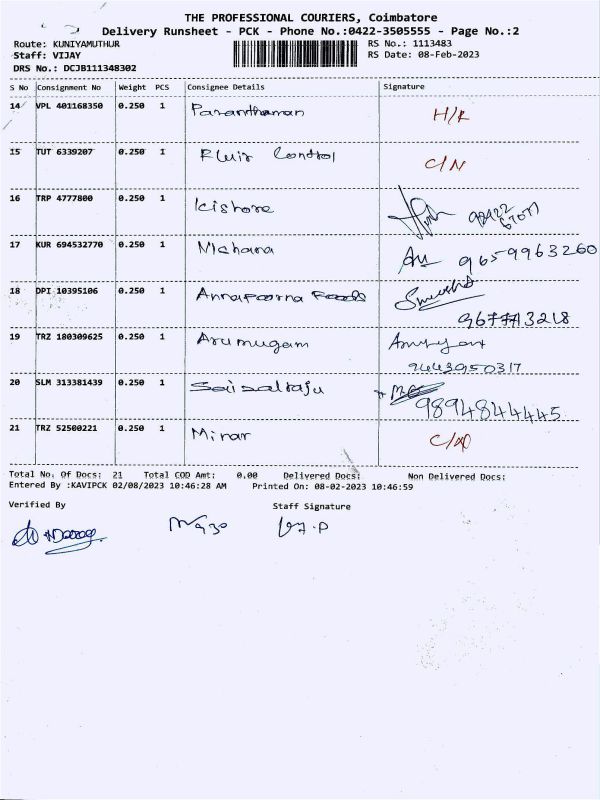 THE PROFESSIONAL COURIERS, Coimbatore
Delivery Runsheet - PCK - Phone No.:0422-3505555 - Page No.:2
Route: KUNIYAMUTHUR
RS No.: 1113483
Staff: VIJAY
RS Date: 08-Feb-2023
DRS No.: DCJB111348302
S No Consignment No Weight PCS Consignee Details Signature
14 VPL 401168350 0.250 1 Paranthaman H/R
15 TUT 6339207 0.250 1 Fluir Control C/N
16 TRP 4777800 0.250 1 Kishore
17 KUR 694532770 0.250 1 Nishara 9659963260
18 DPI 10395106 0.250 1 Annapoorna Foods
19 TRZ 180309625 0.250 1 Arumugam
9443950317
20 SLM 313381439 0.250 1
9894844445
21 TRZ 52500221 0.250 1 Minar
Total No. Of Docs: 21 Total COD Amt: 0.00 Delivered Docs: Non Delivered Docs:
Entered By :KAVIPCK 02/08/2023 10:46:28 AM Printed On: 08-02-2023 10:46:59
Verified By Staff Signature